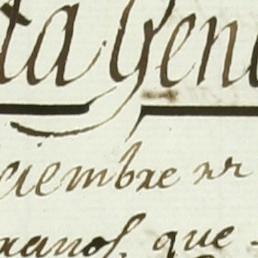 ta Gene
ciembre nr
xanos, que